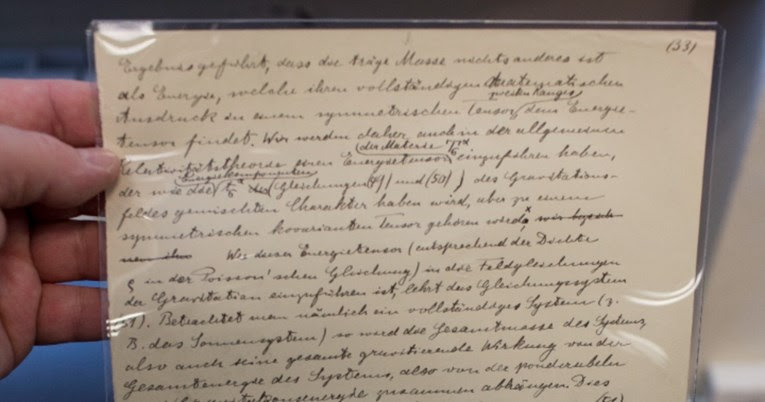 (33)
Ergebnis geführt, dass die träge Masse nichts anderes ist
als Energie, welche ihren vollständigen mathematischen
Ausdruck in einem symmetrischen Tensor zweiten Ranges, dem Energie-
tensor findet. Wir werden daher auch in der allgemeinen
Relativitätstheorie einen Energietensor der Materie einzuführen haben,
der wie die Energiekomponenten (Gleichungen (49) und (50)) des Gravitations-
feldes gemischten Charakter haben wird, aber zu einem
symmetrischen kovarianten Tensor gehören wird
Wie dieser Energietensor (entsprechend der Dichte
ρ in der Poisson'schen Gleichung) in die Feldgleichungen
der Gravitation einzuführen ist, lehrt das Gleichungssystem
51). Betrachtet man nämlich ein vollständiges System (z.
B. das Sonnensystem) so wird die Gesamtmasse des Systems,
also auch seine gesamte gravitierende Wirkung von der
Gesamtenergie des Systems, also von der ponderabeln
zusammen abhängen. Dies